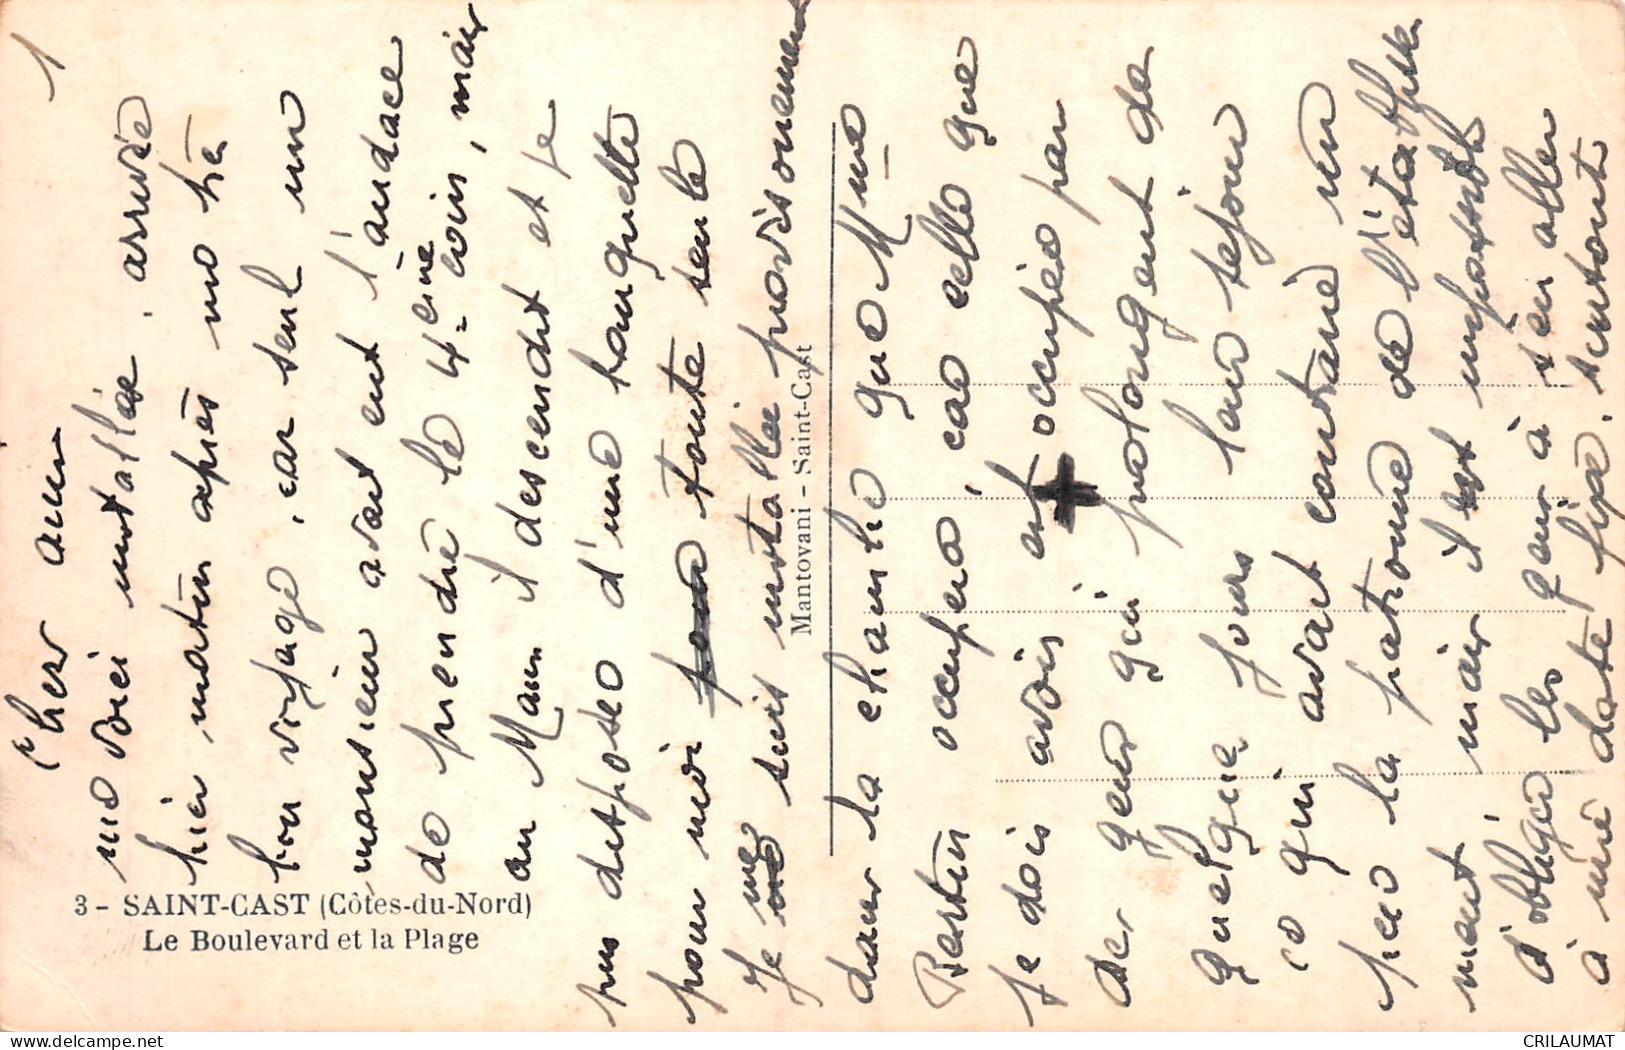 1
Cher ami
me voici installée, arrivée
hier matin après un très
bon voyage, car seul un
monsieur avait eut l'audace
de prendre le 4ème coin, mais
au Mans il descendit et je
pus disposer d'une banquette
pour moi toute seule
Je me suis installée provisoirement
dans la chambre que Mme
Bertin occupera, car celle que
je dois avoir est occupée par
des gens qui prolongent de
quelque jours leur séjour
ce qui avait contrarié un
peu la patronne de l'établisse
ment mais il est impossible
d'obliger les gens à s'en aller
à une date fixe, surtout
3 - SAINT-CAST (Côtes-du-Nord)
Le Boulevard et la Plage
Mantovani - Saint-Cast
delcampe.net
CRILAUMAT